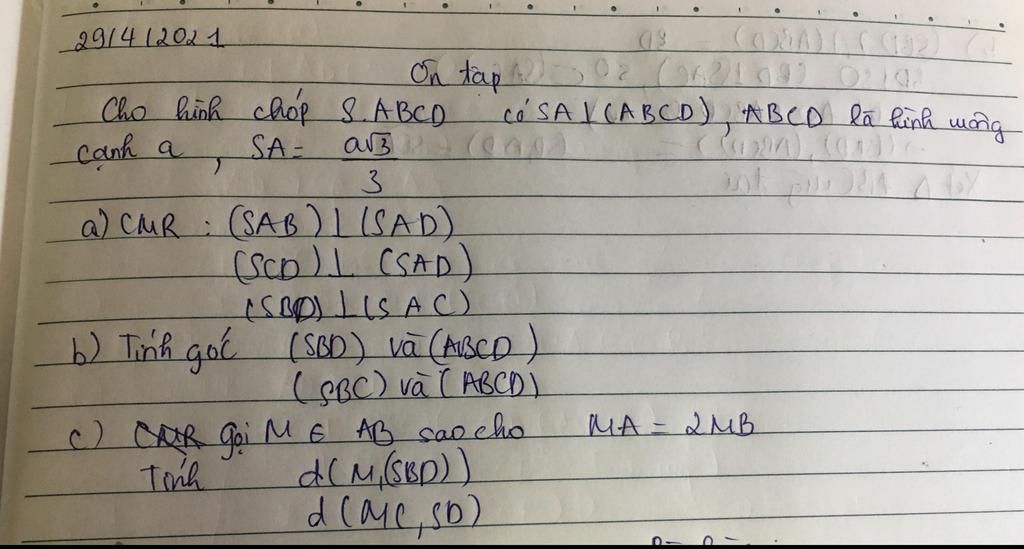 29/4/2021
Ôn tập
Cho hình chóp S.ABCD có SA⊥(ABCD), ABCD là hình vuông
cạnh a, SA = a√3/3
a) CMR : (SAB)⊥(SAD)
(SCD)⊥(SAD)
(SBD)⊥(SAC)
b) Tính góc (SBD) và (ABCD)
(SBC) và (ABCD)
c) CMR gọi M ∈ AB sao cho MA = 2MB
Tính d(M,(SBD))
d(MC,SD)